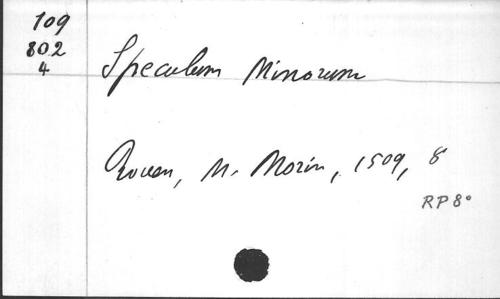 109
802
4
Speculum Minorum
Rouen, M. Morin, 1509, 8
RP 8°